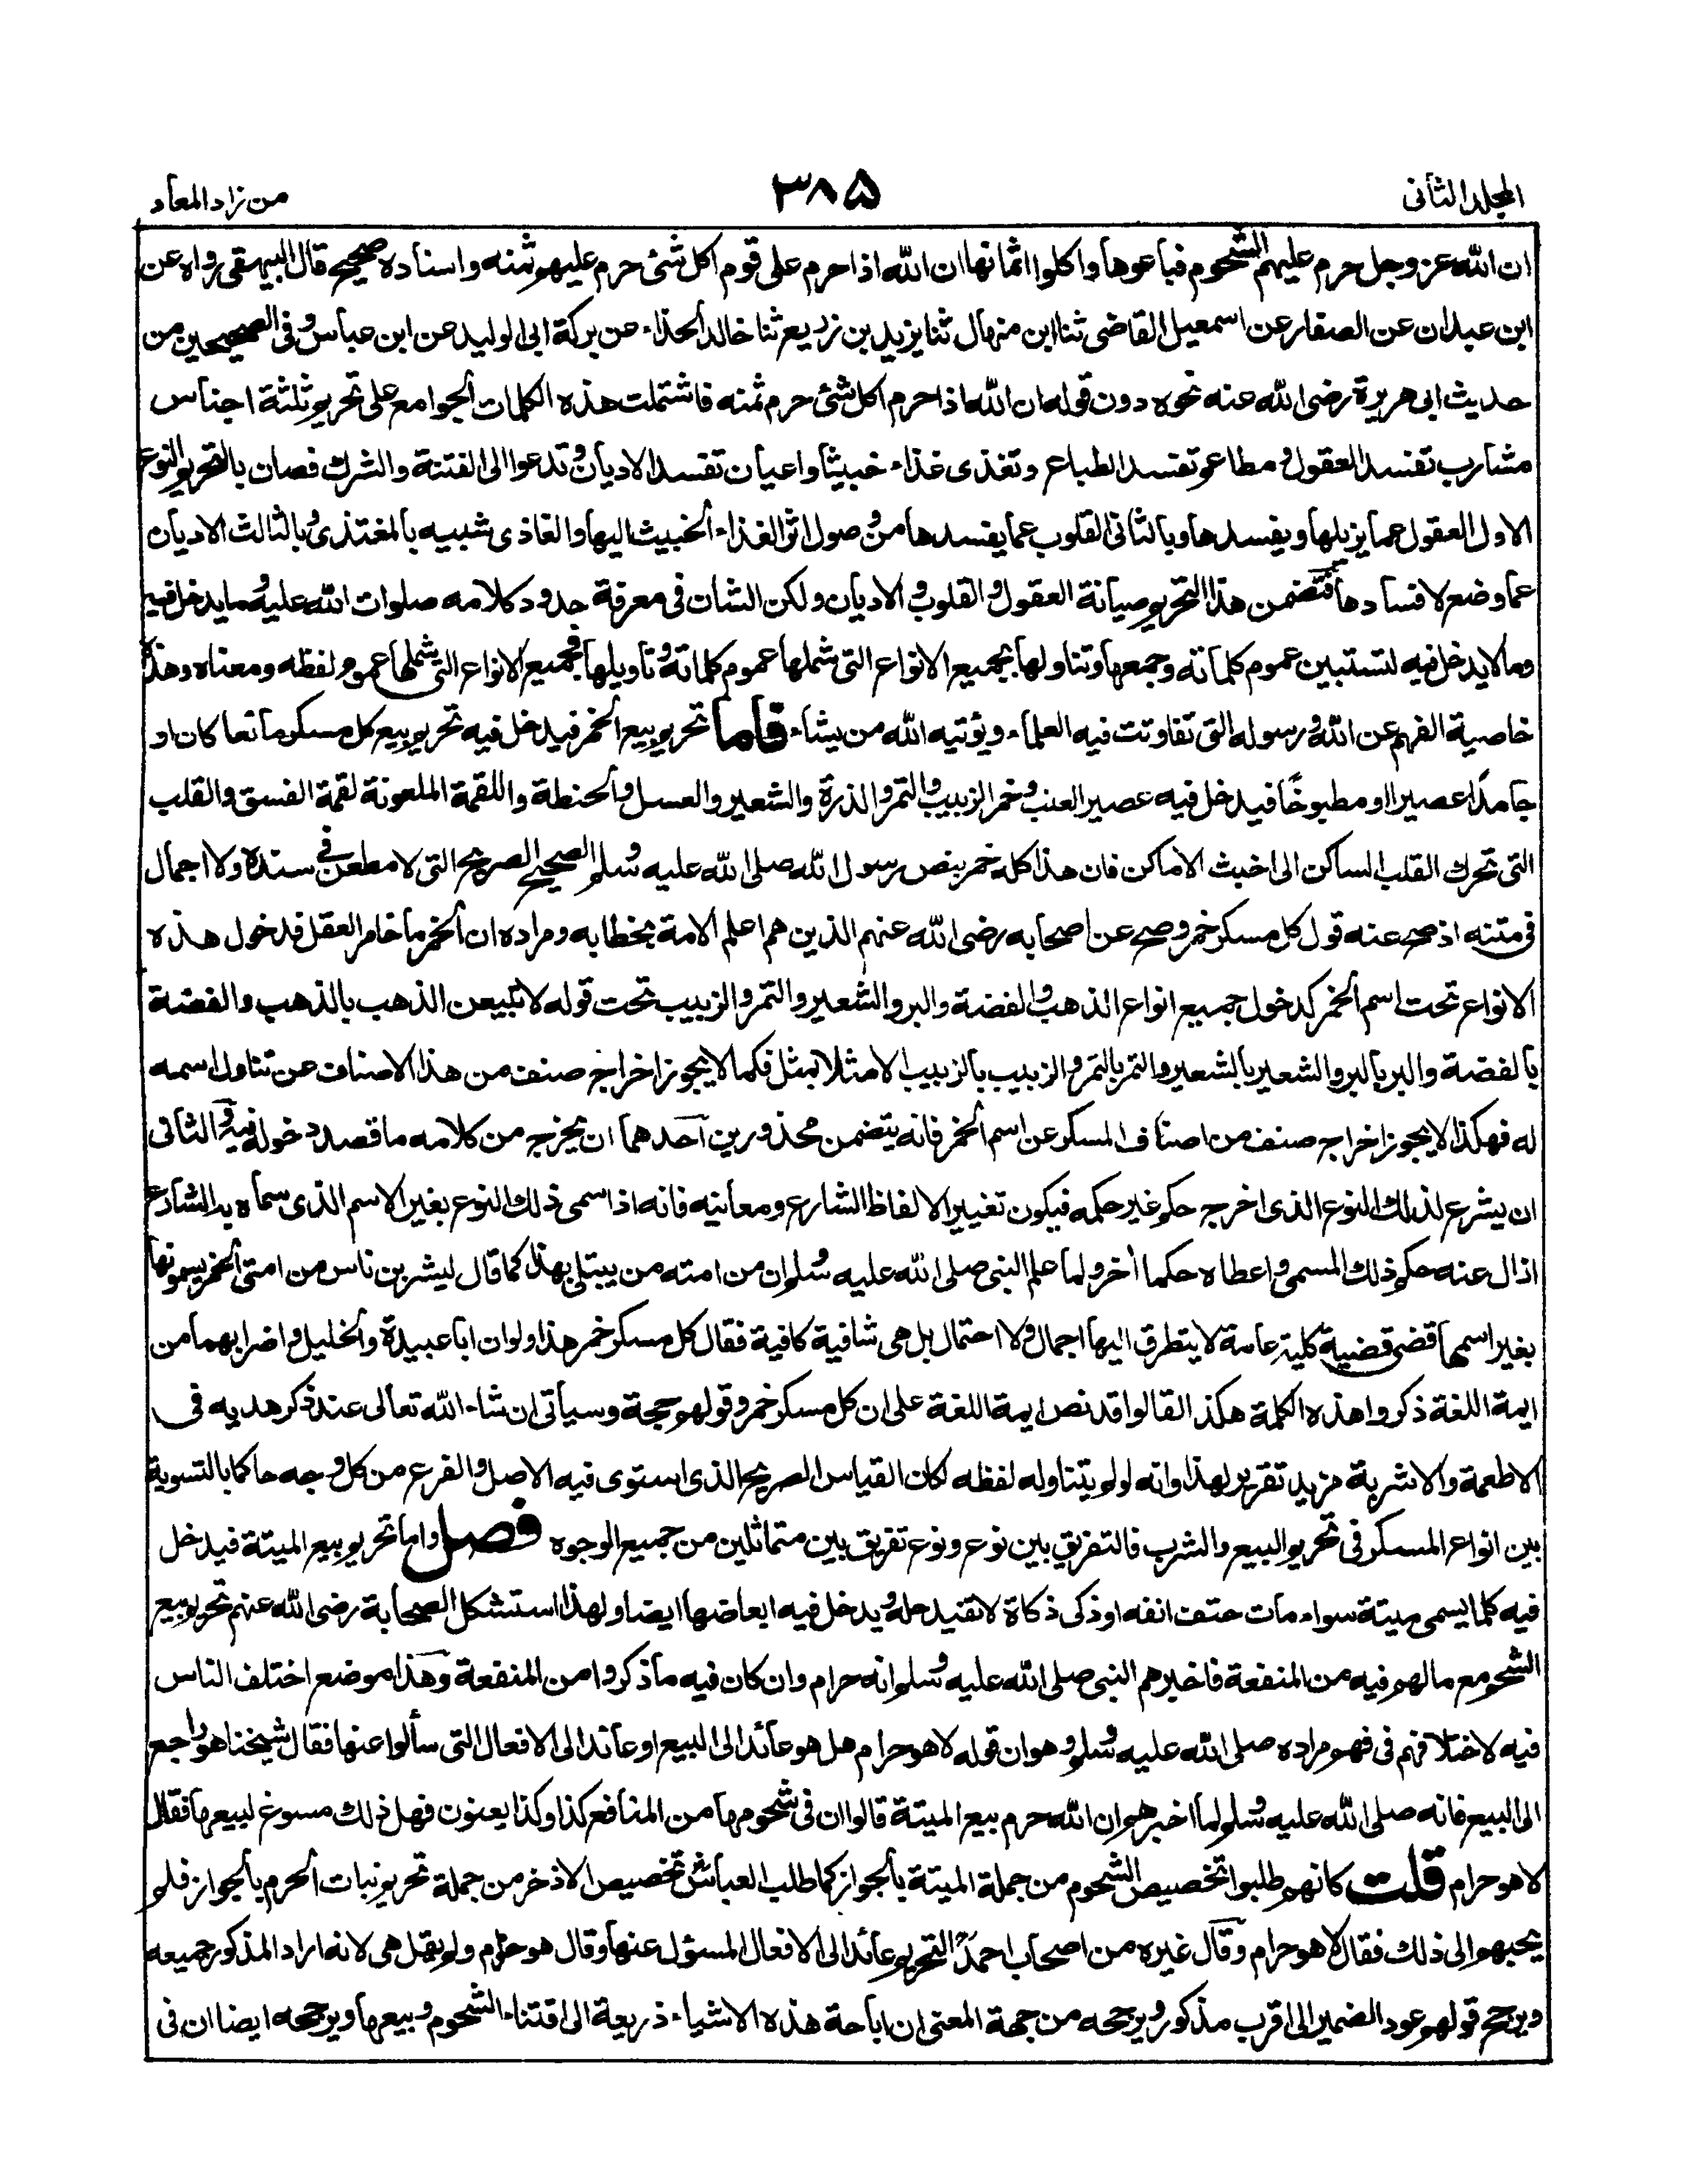 المجلد الثاني
۳۸۵
من زاد المعاد
ان الله عز وجل حرم عليهم الشحوم فباعوها واكلوا اثمانها ان الله اذا حرم على قوم اكل شئ حرم عليهم ثمنه واسناده صحيح قال البيهقي رواه عن
ابن عبدان عن الصفار عن اسمعيل القاضي ثنا ابن منهال ثنا يزيد بن زريع ثنا خالد الحذاء عن بركة ابي الوليد عن ابن عباس وفي الصحيحين من
حديث ابي هريرة رضي الله عنه نحوه دون قوله ان الله اذا حرم اكل شئ حرم ثمنه فاشتملت هذه الكلمات الجوامع على تحريم ثلثة اجناس
مشارب تفسد العقول و مطاعم تفسد الطباع وتغذى غذاء خبيثا واعيان تفسد الاديان وتدعوا الى الفتنة والشرك فصان بالتحريم النوع
الاول العقول عما يزيلها ويفسدها وبالثاني القلوب عما يفسدها من وصول اثر الغذاء الخبيث اليها والغاذي شبيه بالمغتذي وبالثالث الاديان
عما وضع لافسادها فتضمن هذا التحريم صيانة العقول و القلوب و الاديان ولكن الشان في معرفة حدود كلامه صلوات الله عليه وما يدخل فيه
وما لا يدخل فيه لتستبين عموم كلماته وجمعها وتناولها بجميع الانواع التي شملها عموم كلماته وتاويلها بجميع الانواع التي شملها عموم لفظه ومعناه وهذا
خاصية الفهم عن الله ورسوله التي تفاوتت فيه العلماء ويؤتيه الله من يشاء فاما تحريم بيع الخمر فيدخل فيه تحريم بيع كل مسكر مائعا كان او
جامدا عصيرا او مطبوخا فيدخل فيه عصير العنب وخمر الزبيب والتمر والذرة والشعير والعسل والحنطة واللقمة الملعونة لقمة الفسق والقلب
التي تحرك القلب الساكن الى اخبث الاماكن فان هذا كله خمر بنص رسول الله صلى الله عليه وسلم الصحيح الصريح التي لا مطعن في سنده ولا اجمال
في متنه اذ صح عنه قول كل مسكر خمر وصح عن اصحابه رضي الله عنهم الذين هم اعلم الامة بخطابه ومراده ان الخمر ما خامر العقل فدخول هذه
الانواع تحت اسم الخمر كدخول جميع انواع الذهب والفضة والبر والشعير والتمر والزبيب تحت قوله لا تبيعن الذهب بالذهب والفضة
بالفضة والبر بالبر والشعير بالشعير والتمر بالتمر والزبيب بالزبيب الا مثلا بمثل فكما لا يجوز اخراج صنف من هذا الاصناف عن تناول اسمه
له فهكذا لا يجوز اخراج صنف من اصناف المسكر عن اسم الخمر فانه يتضمن محذورين احدهما ان يخرج من كلامه ما قصد دخوله فيه والثاني
ان يشرع لذلك النوع الذي اخرج حكم غير حكمه فيكون تغييرا لالفاظ الشارع ومعانيه فانه اذا سمى ذلك النوع بغير الاسم الذي سماه به الشارع
ازال عنه حكم ذلك المسمى واعطاه حكما آخر ولما علم النبي صلى الله عليه وسلم ان من امته من يبتلى بهذا كما قال ليشربن ناس من امتي الخمر يسمونها
بغير اسمها قضى قضية كلية عامة لا يتطرق اليها اجمال ولا احتمال بل هي شافية كافية فقال كل مسكر خمر هذا ولو ان ابا عبيدة والخليل واضرابهما من
ايمة اللغة ذكروا هذه الكلمة هكذا لقالوا قد نص ايمة اللغة على ان كل مسكر خمر وقولهم حجة وسيأتي ان شاء الله تعالى عند ذكر هديه في
الاطعمة والاشربة مزيد تقرير لهذا وانه لو لم يتناوله لفظه لكان القياس الصريح الذي استوى فيه الاصل والفرع من كل وجه حاكما بالتسوية
بين انواع المسكر في تحريم البيع والشرب فالتفريق بين نوع ونوع تفريق بين متماثلين من جميع الوجوه فصل واما تحريم بيع الميتة فيدخل
فيه كلما يسمى ميتة سواء مات حتف انفه او ذكى ذكاة لا تفيد حله ويدخل فيه ابعاضها ايضا ولهذا استشكل الصحابة رضي الله عنهم تحريم بيع
الشحم مع ما لهم فيه من المنفعة فاخبرهم النبي صلى الله عليه وسلم انه حرام وان كان فيه ما ذكروا من المنفعة وهذا موضع اختلف الناس
فيه لاختلافهم في فهم مراده صلى الله عليه وسلم وهو ان قوله لا هو حرام هل هو عائد الى البيع او عائد الى الافعال التي سألوا عنها فقال شيخنا هو راجع
الى البيع فانه صلى الله عليه وسلم لما اخبرهم ان الله حرم بيع الميتة قالوا ان في شحومها من المنافع كذا وكذا يعنون فهل ذلك مسوغ لبيعها فقال
لا هو حرام قلت كانهم طلبوا تخصيص الشحوم من جملة الميتة بالجواز كما طلب العباس تخصيص الاذخر من جملة تحريم نبات الحرم بالجواز فلم
يجبهم الى ذلك فقال لا هو حرام وقال غيره من اصحاب احمد التحريم عائد الى الافعال المسؤل عنها وقال هو حرام ولم يقل هي لانه اراد المذكور جميعه
ويرجح قولهم عود الضمير الى اقرب مذكور ويرجحه من جهة المعنى ان اباحة هذه الاشياء ذريعة الى اقتناء الشحوم وبيعها ويرجحه ايضا ان في